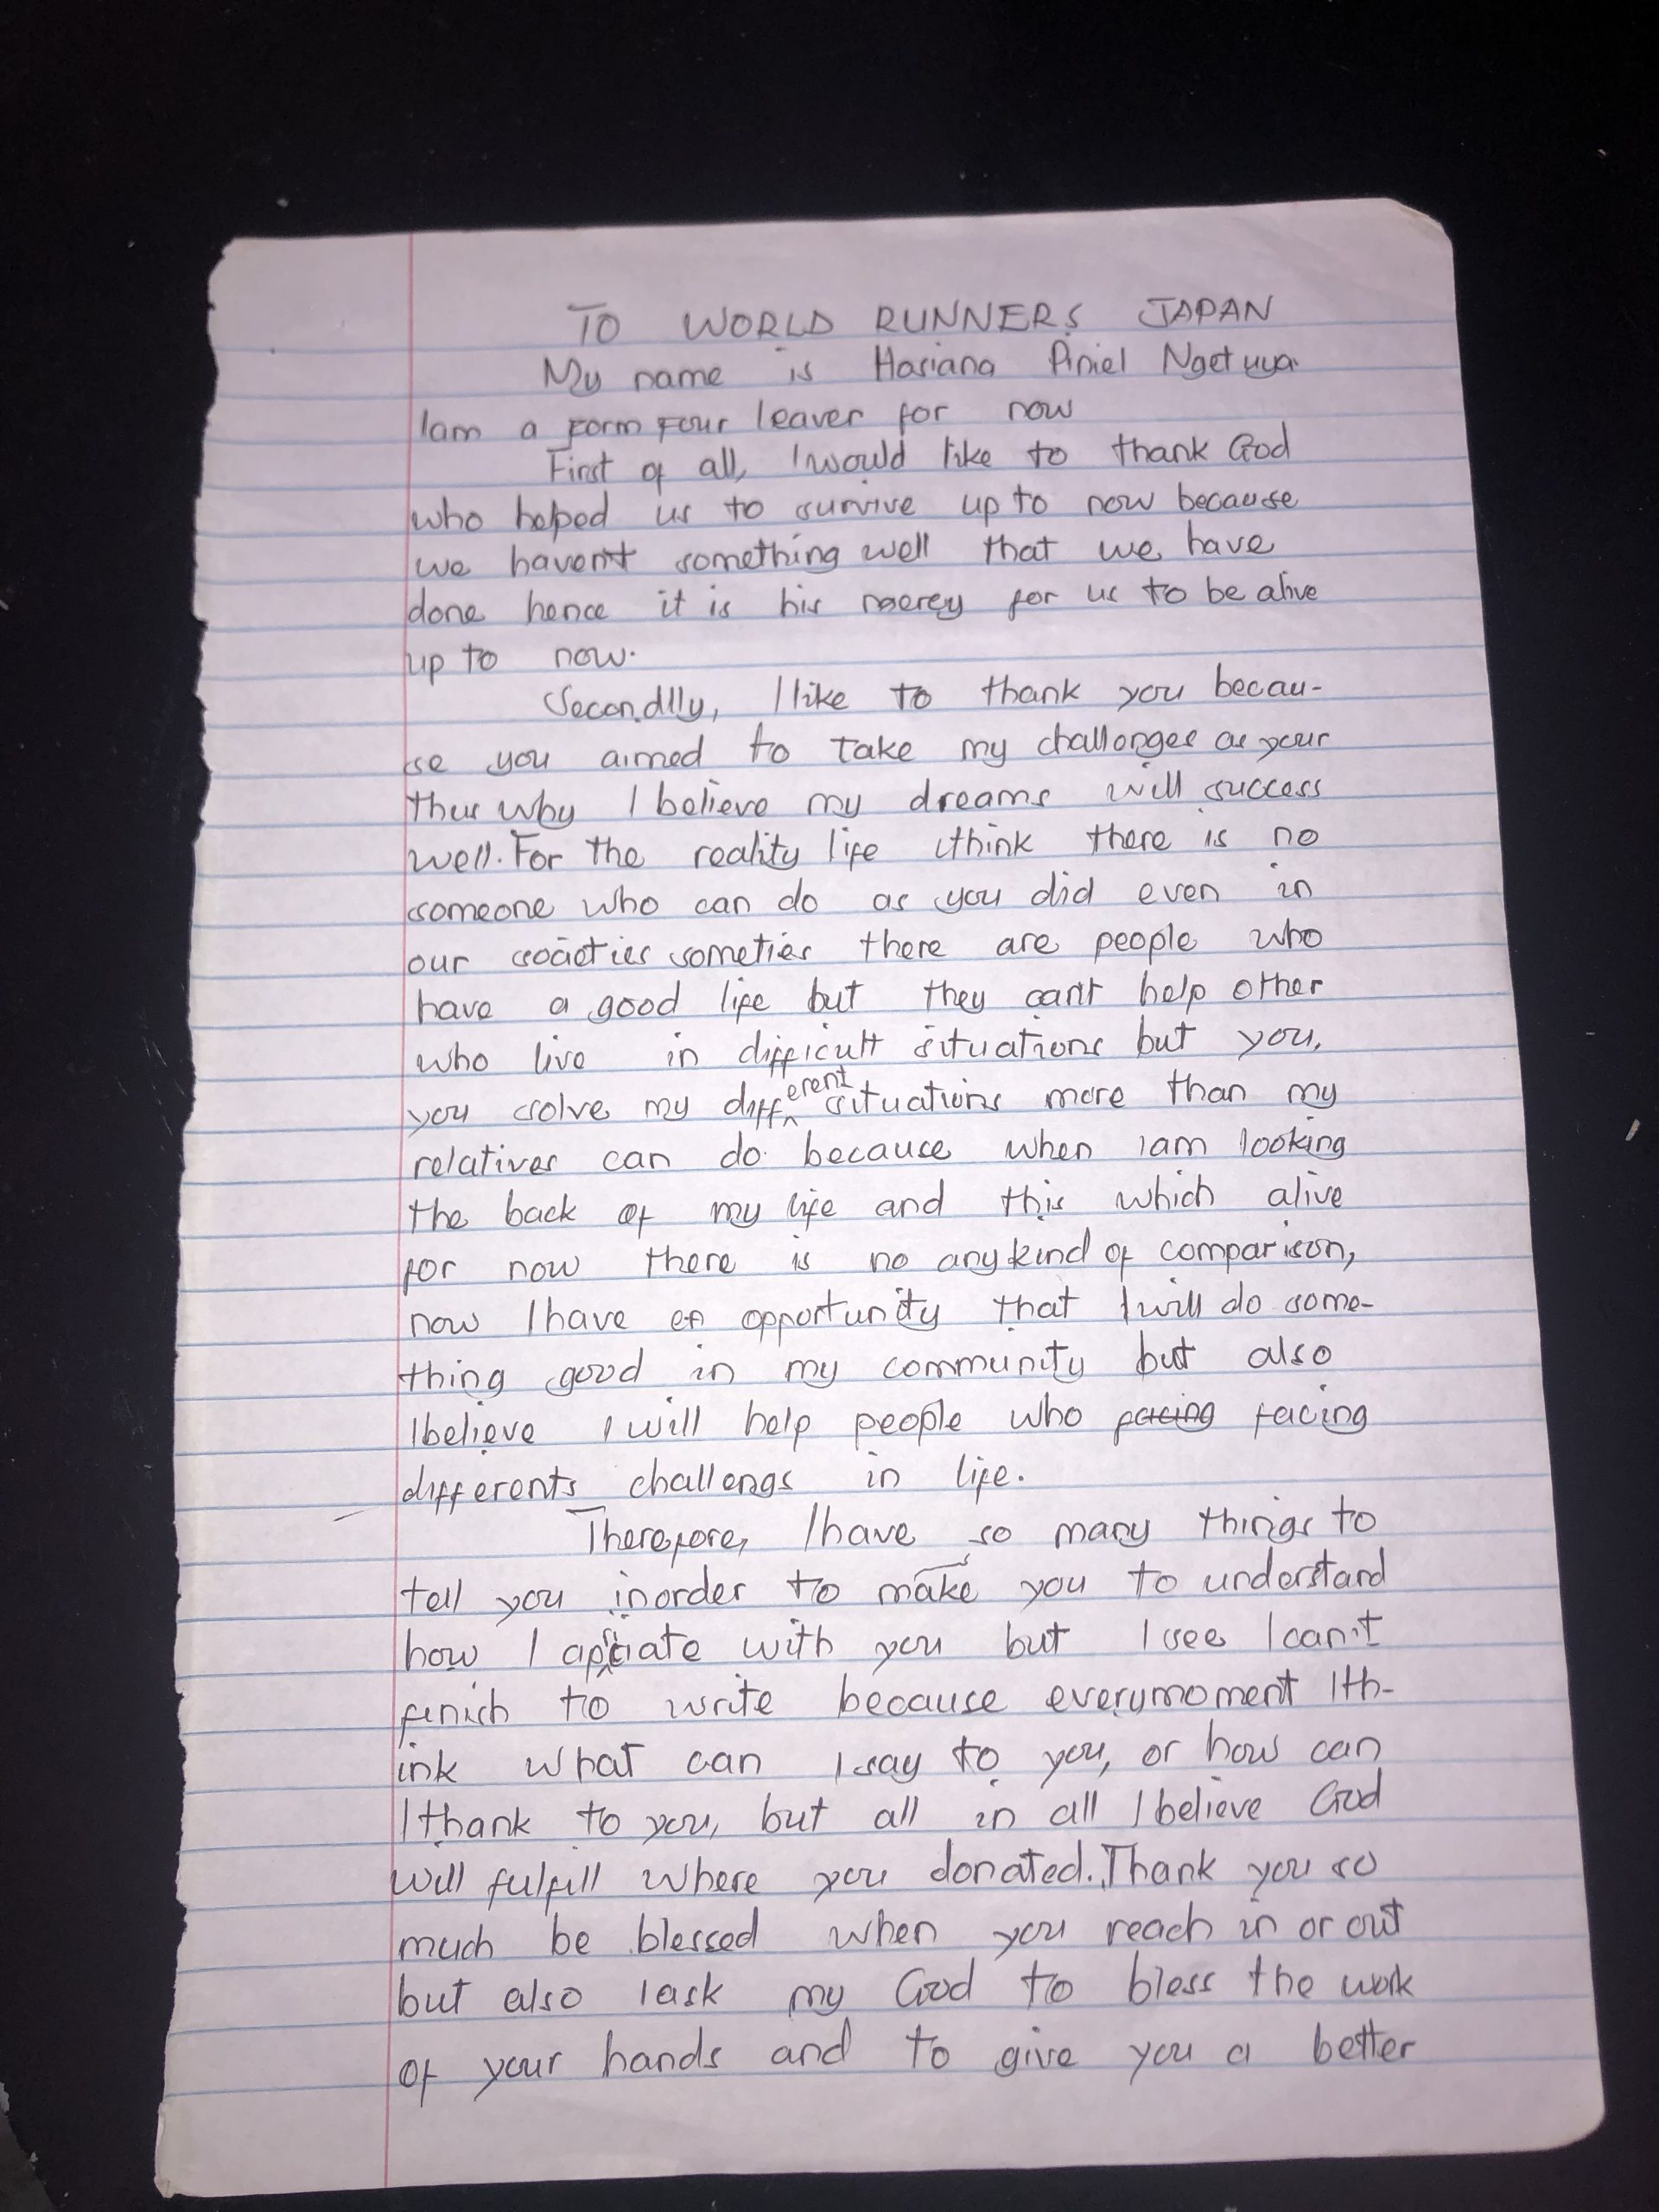 TO WORLD RUNNERS JAPAN
My name is Hosiana Piniel Ngetuya.
Iam a form Four leaver for now
First of all, I would like to thank God
who helped us to survive up to now because
we haven't something well that we have
done hence it is his mercy for us to be alive
up to now.
Secondlly, I like to thank you becau-
se you aimed to take my challenges as your
thus why I believe my dreams will success
well. For the reality life ithink there is no
someone who can do as you did even in
our societies someties there are people who
have a good life but they can't help other
who live in difficult situations but you,
you solve my different situations more than my
relatives can do because when iam looking
the back of my life and this which alive
for now there is no anykind of comparison,
now I have an opportunity that I will do some-
thing good in my community but also
I believe I will help people who facing facing
differents challengs in life.
Therefore, I have so many things to
tell you inorder to make you to understand
how I apriciate with you but I see I can't
finish to write because everymoment I th-
ink what can I say to you, or how can
I thank to you, but all in all I believe God
will fulfill where you donated. Thank you so
much be blessed when you reach in or out
but also I ask my God to bless the work
of your hands and to give you a better